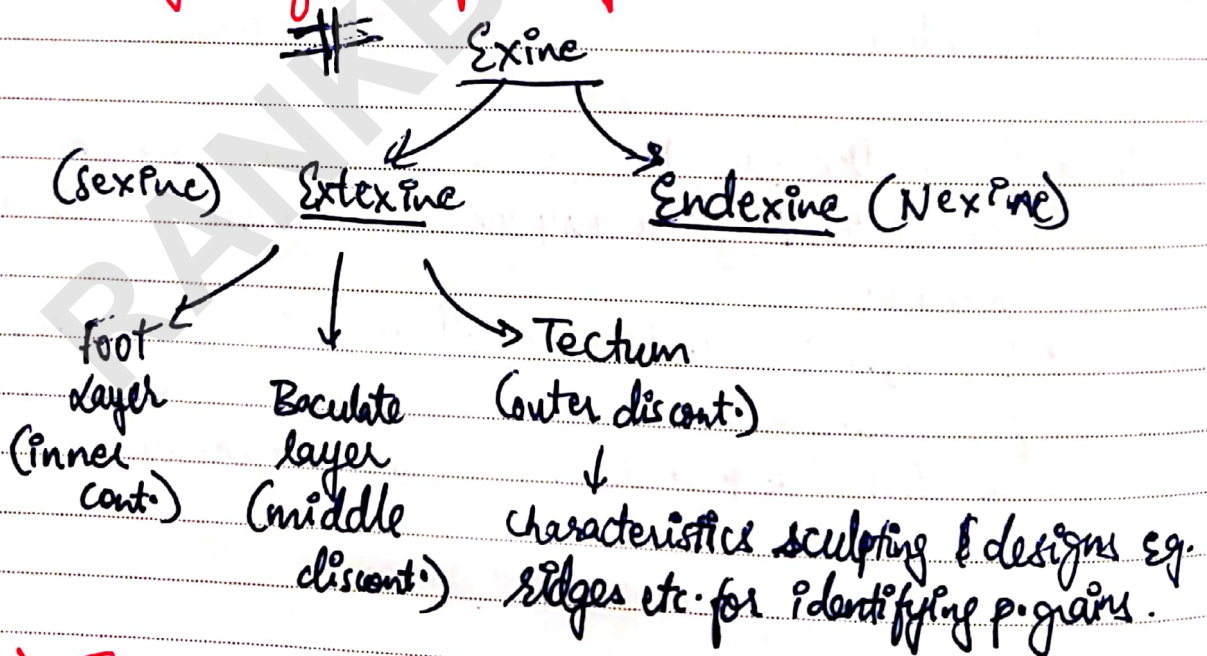 Exine
(Sexine) Extexine Endexine (Nexine)
Foot Layer (inner cont.)
Baculate layer (middle discont.)
Tectum (outer discont.)
characteristics sculpting & designs eg.
ridges etc. for identifying p. grains.